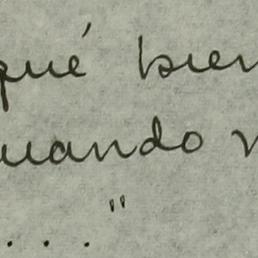 qué bien
uando v
. . . . "